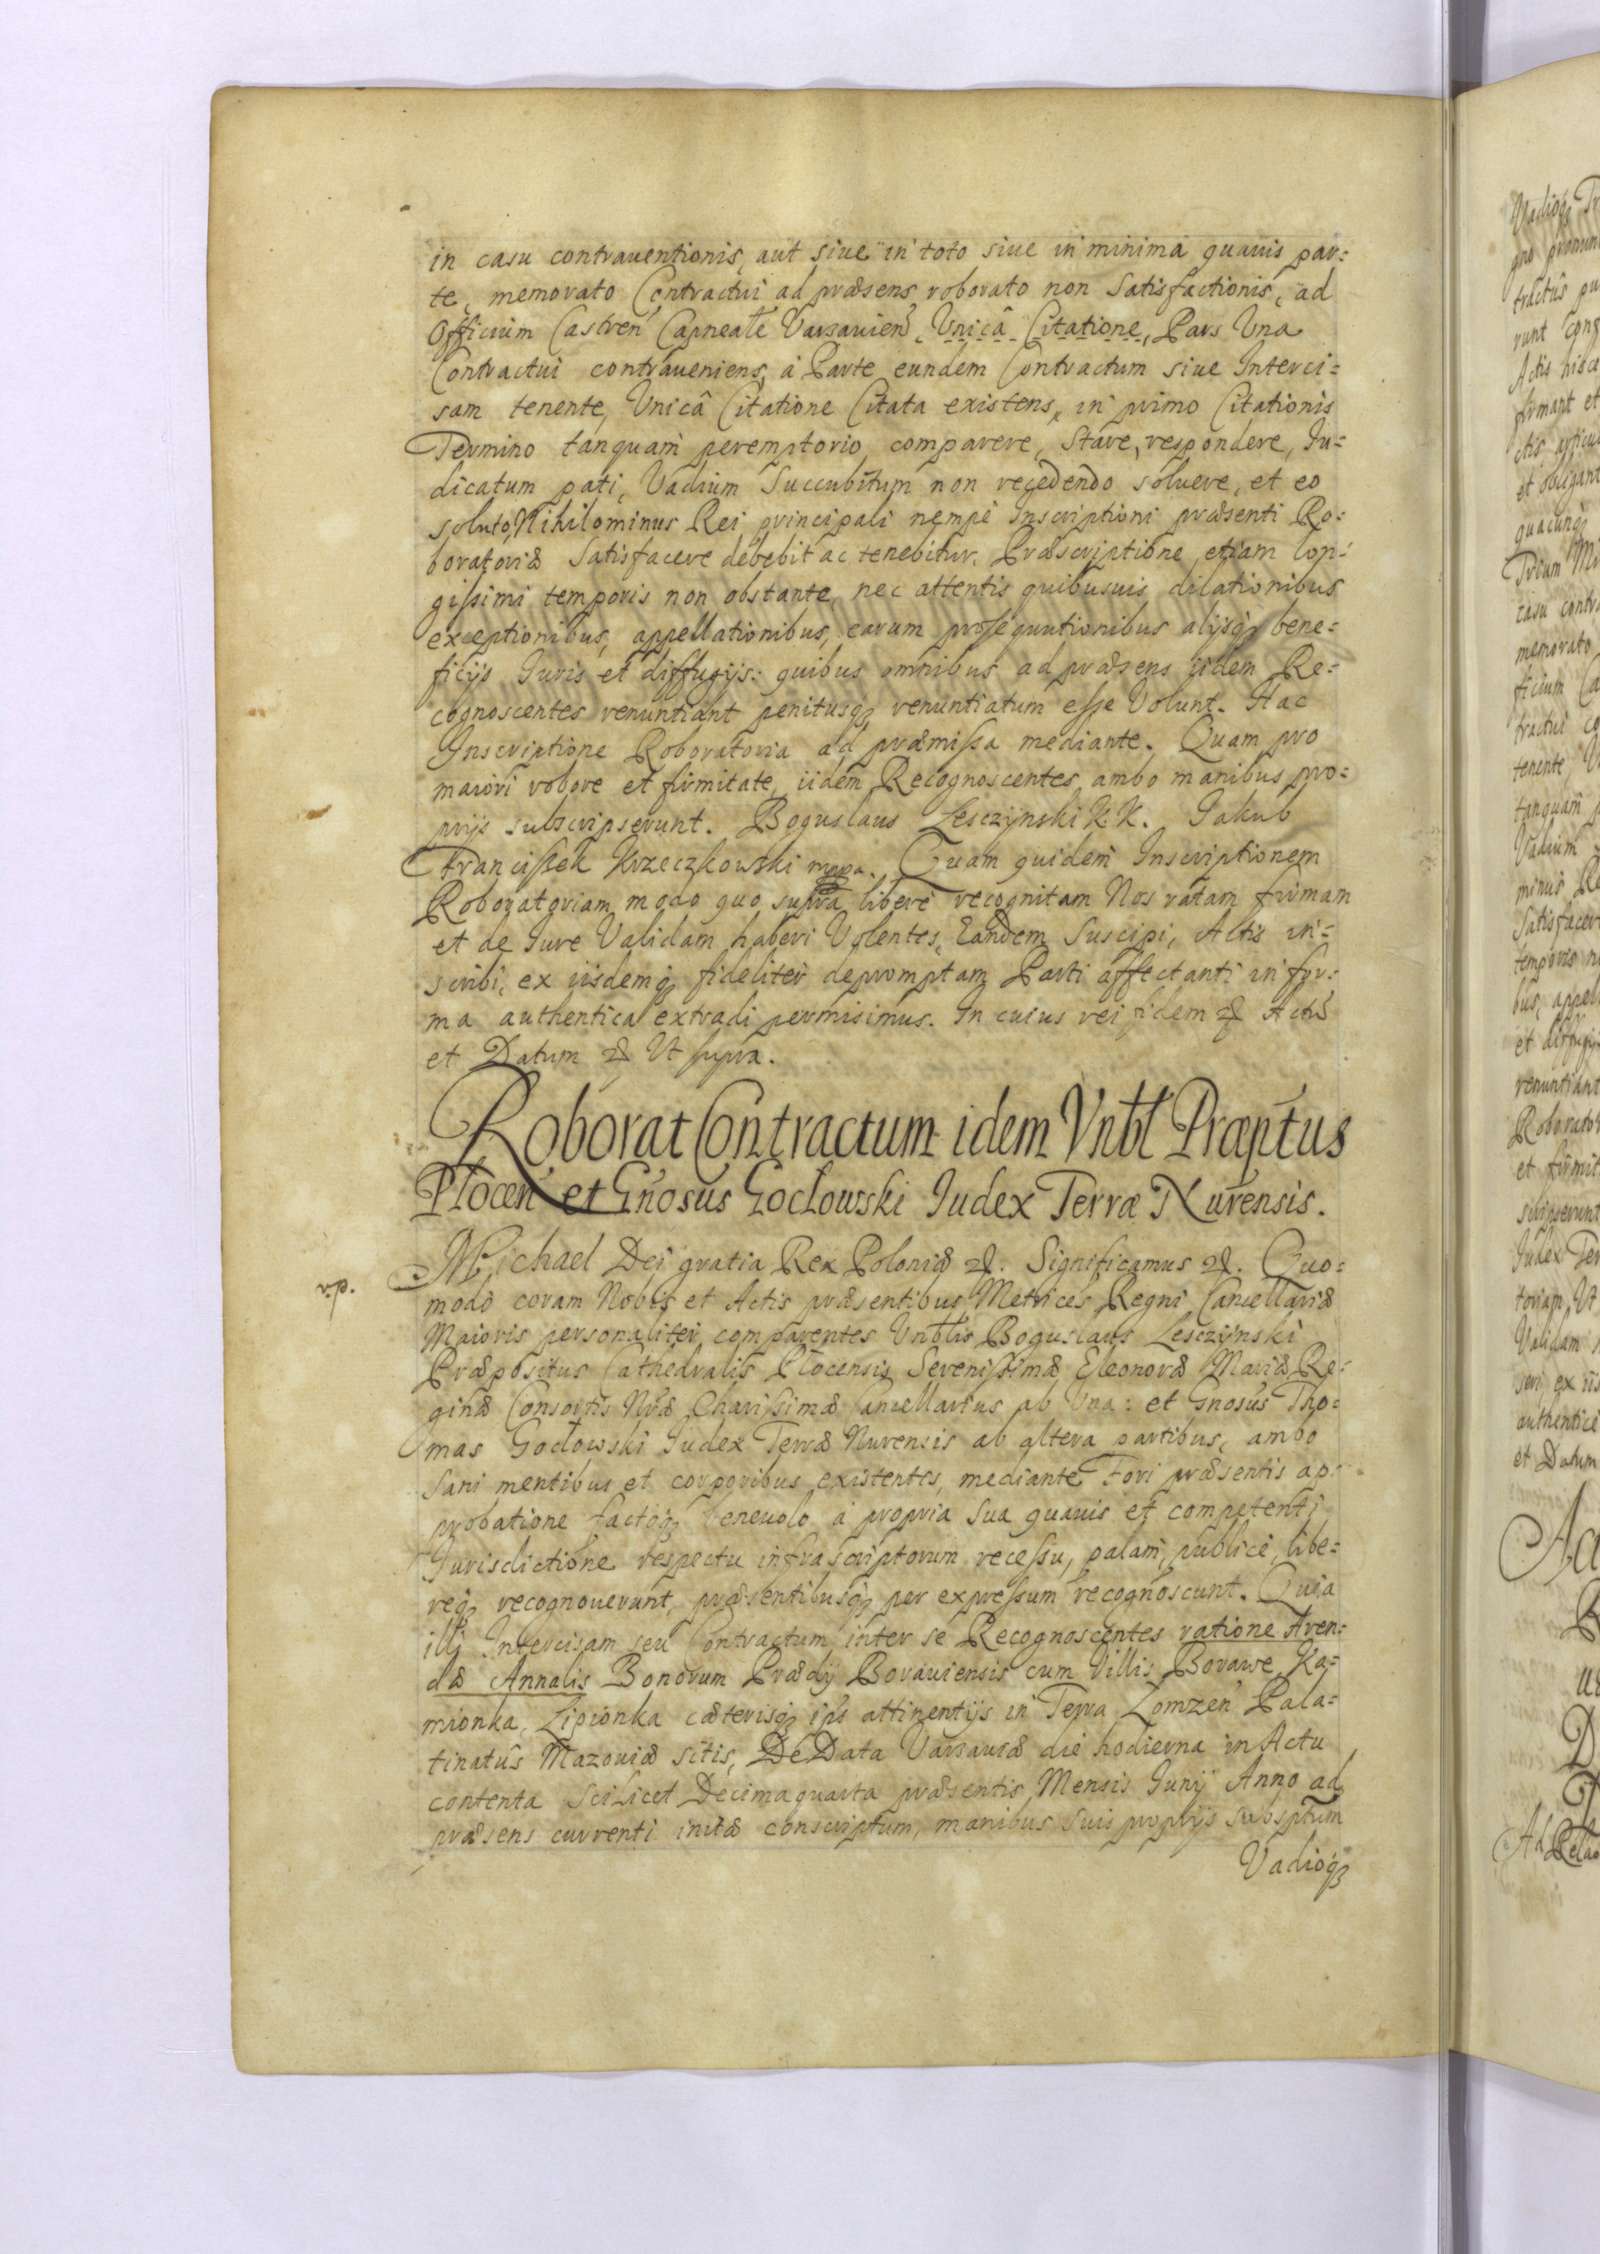 in casu contrauentionis, aut siue in toto siue in minima quauis par=
te, memorato Contractui ad præsens roborato non Satisfactionis, ad
Officium Castren Capneale Varsauien, Vnicâ Citatione, Pars Vna
Contractui contraueniens, à Parte eundem Contractum siue Interci=
sam tenente, Vnicâ Citatione Citata existens, in primo Citationis
Termino tanquam peremptorio comparere, Stare, respondere, Iu=
dicatum pati, Vadium Succubitum non recedendo soluere, et eo
soluto, Nihilominus Rei principali nempe Inscriptioni præsenti Ro=
boratoriæ Satisfacere debebit ac tenebitur. Præscriptione etiam lon=
gissimi temporis non obstante, nec attentis quibusuis dilationibus
exceptionibus, appellationibus, earum prosequutionibus alijsq₃ bene=
ficijs Iuris et diffugijs: quibus omnibus ad præsens iidem Re=
cognoscentes renuntiant penitusq₃ renuntiatum esse Volunt. Hac
Inscriptione Roboratoria ad præmissa mediante. Quam pro
maiori robore et firmitate, iidem Recognoscentes ambo manibus pro=
prijs subscripserunt. Boguslaus Lesczynski K.K. Jakub
Franciszek Krzeczkowski mppa. Quam quidem Inscriptionem
Roboratoriam modo quo supra liberè recognitam Nos ratam firmam
et de Iure Validam haberi Volentes, Eandem Suscipi, Actis in=
scribi, ex iisdemq₃ fideliter depromptam Parti affectanti in for=
ma authentica extradi permisimus. In cuius rei fidem &. Actũ
et Datum & Vt supra.
Roborat Contractum idem Vnbl Præptus
Plocen et Gnosus Goclowski Iudex Terræ Nurensis.
v.p.
Michael Dei gratia Rex Poloniæ &. Significamus &. Quo=
modo coram Nobis et Actis præsentibus Metrices Regni Cancellariæ
Maioris personaliter comparentes Vnblis Boguslaus Lesczynski
Præpositus Cathedralis Plocensis Serenissimæ Eleonoræ Mariæ Re=
ginæ Consortis Nræ Charissimæ Cancellarius ab Vna: et Gnosus Tho=
mas Goclowski Iudex Terræ Nurensis ab altera partibus, ambo
Sani mentibus et corporibus existentes, mediante Fori præsentis ap=
probatione factoq₃ beneuolo à propria sua quauis et competenti
Iurisdictione respectu infrascriptorum recessu, palam, publicè, libe=
req₃ recognouerunt, præsentibusq₃ per expressum recognoscunt. Quia
illi Intercisam seu Contractum inter se Recognoscentes ratione Aren=
dæ Annalis Bonorum Prædij Borauiensis cum Villis Borawe, Ka=
mionka, Lipionka cæterisq₃ ips attinentijs in Terra Lomzen Pala=
tinatûs Mazouiæ sitis, De Data Varsauiæ die hodierna in Actu
contenta Scilicet Decimaquarta præsentis Mensis Iunij Anno ad
præsens currenti initæ conscriptum, manibus suis proprijs subsptum
Vadioq₃